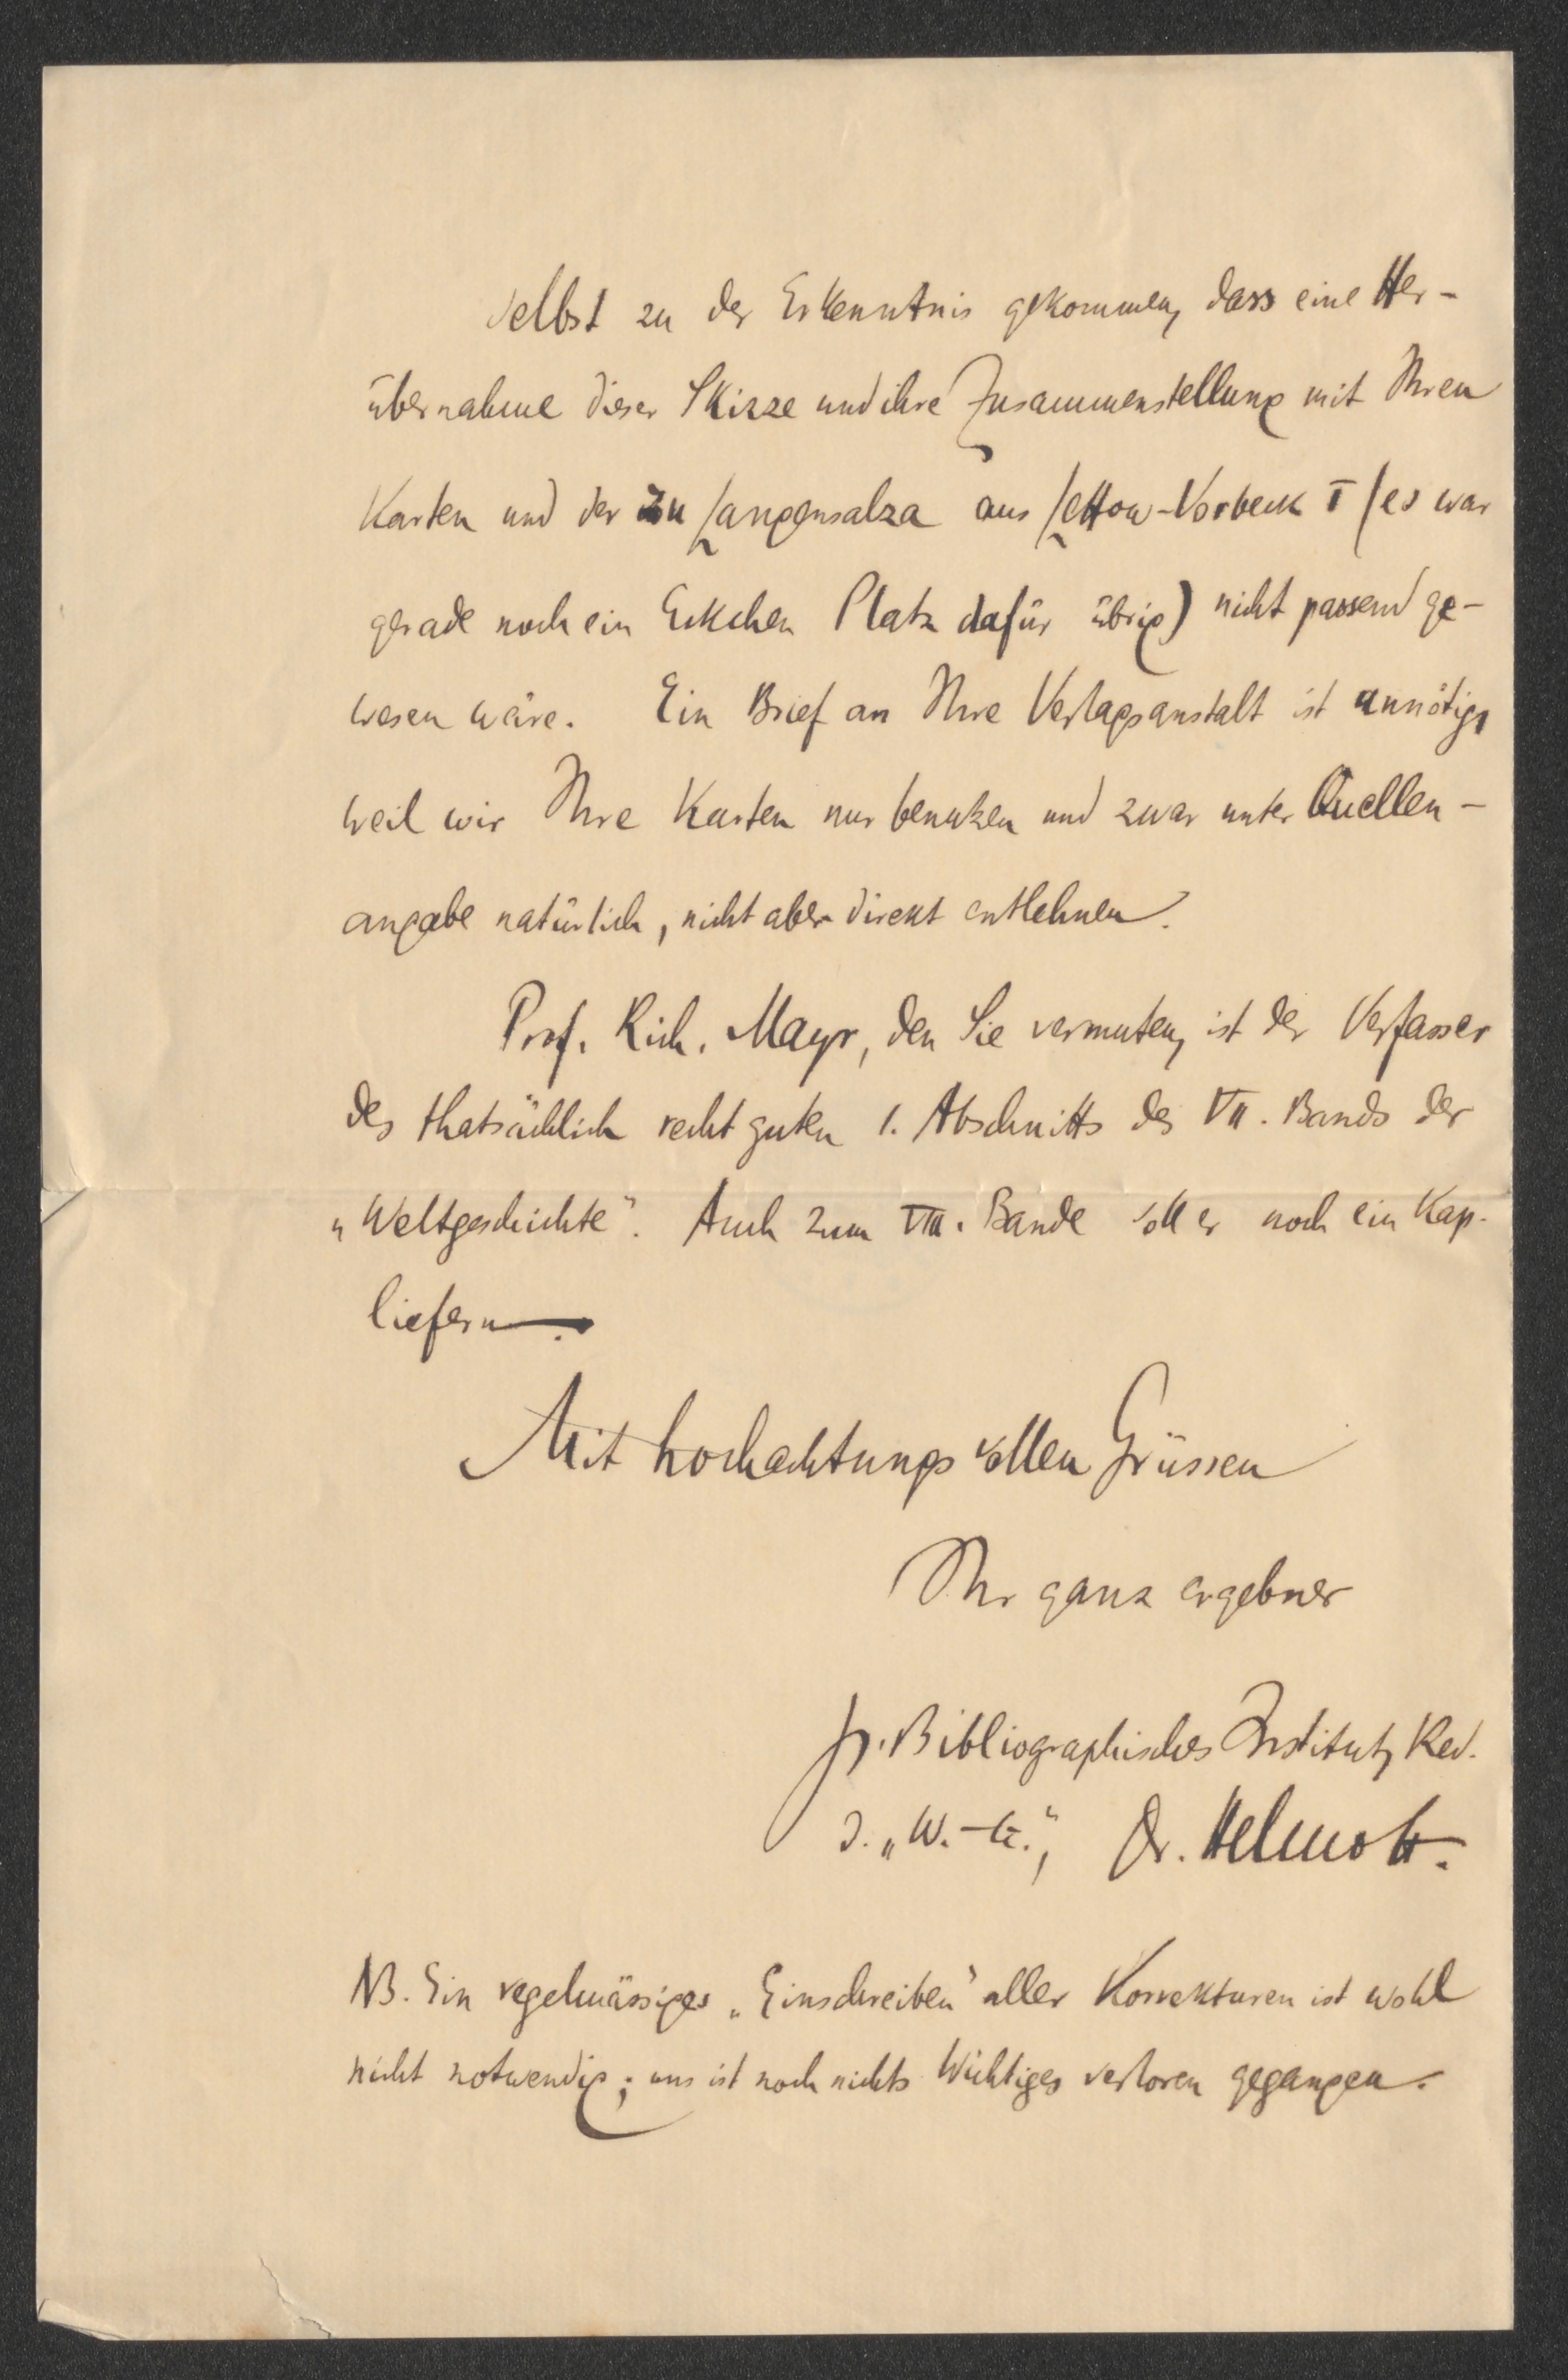 selbst zu der Erkenntnis gekommen, dass eine Her-
übernahme dieser Skizze und ihre Zusammenstellung mit Ihren
Karten und der zu Langensalza aus Lettow-Vorbeck I (es war
gerade noch ein Eckchen Platz dafür übrig) nicht passend ge-
wesen wäre. Ein Brief an Ihre Verlagsanstalt ist unnötig,
weil wir Ihre Karten nur benutzen und zwar unter Quellen-
angabe natürlich, nicht aber direkt entlehnen.
Prof. Rich. Mayr, den Sie vermuten, ist der Verfasser
des thatsächlich recht guten 1. Abschnitts des VII. Bands der
„Weltgeschichte“. Auch zum VIII. Bande soll er noch ein Kap.
liefern.
Mit hochachtungsvollen Grüssen
Ihr ganz ergebner
p. Bibliographisches Institut, Red.
d. „W.-G.“, Dr. Helmolt.
NB. Ein regelmässiges „Einschreiben“ aller Korrekturen ist wohl
nicht notwendig; uns ist noch nichts Wichtiges verloren gegangen.